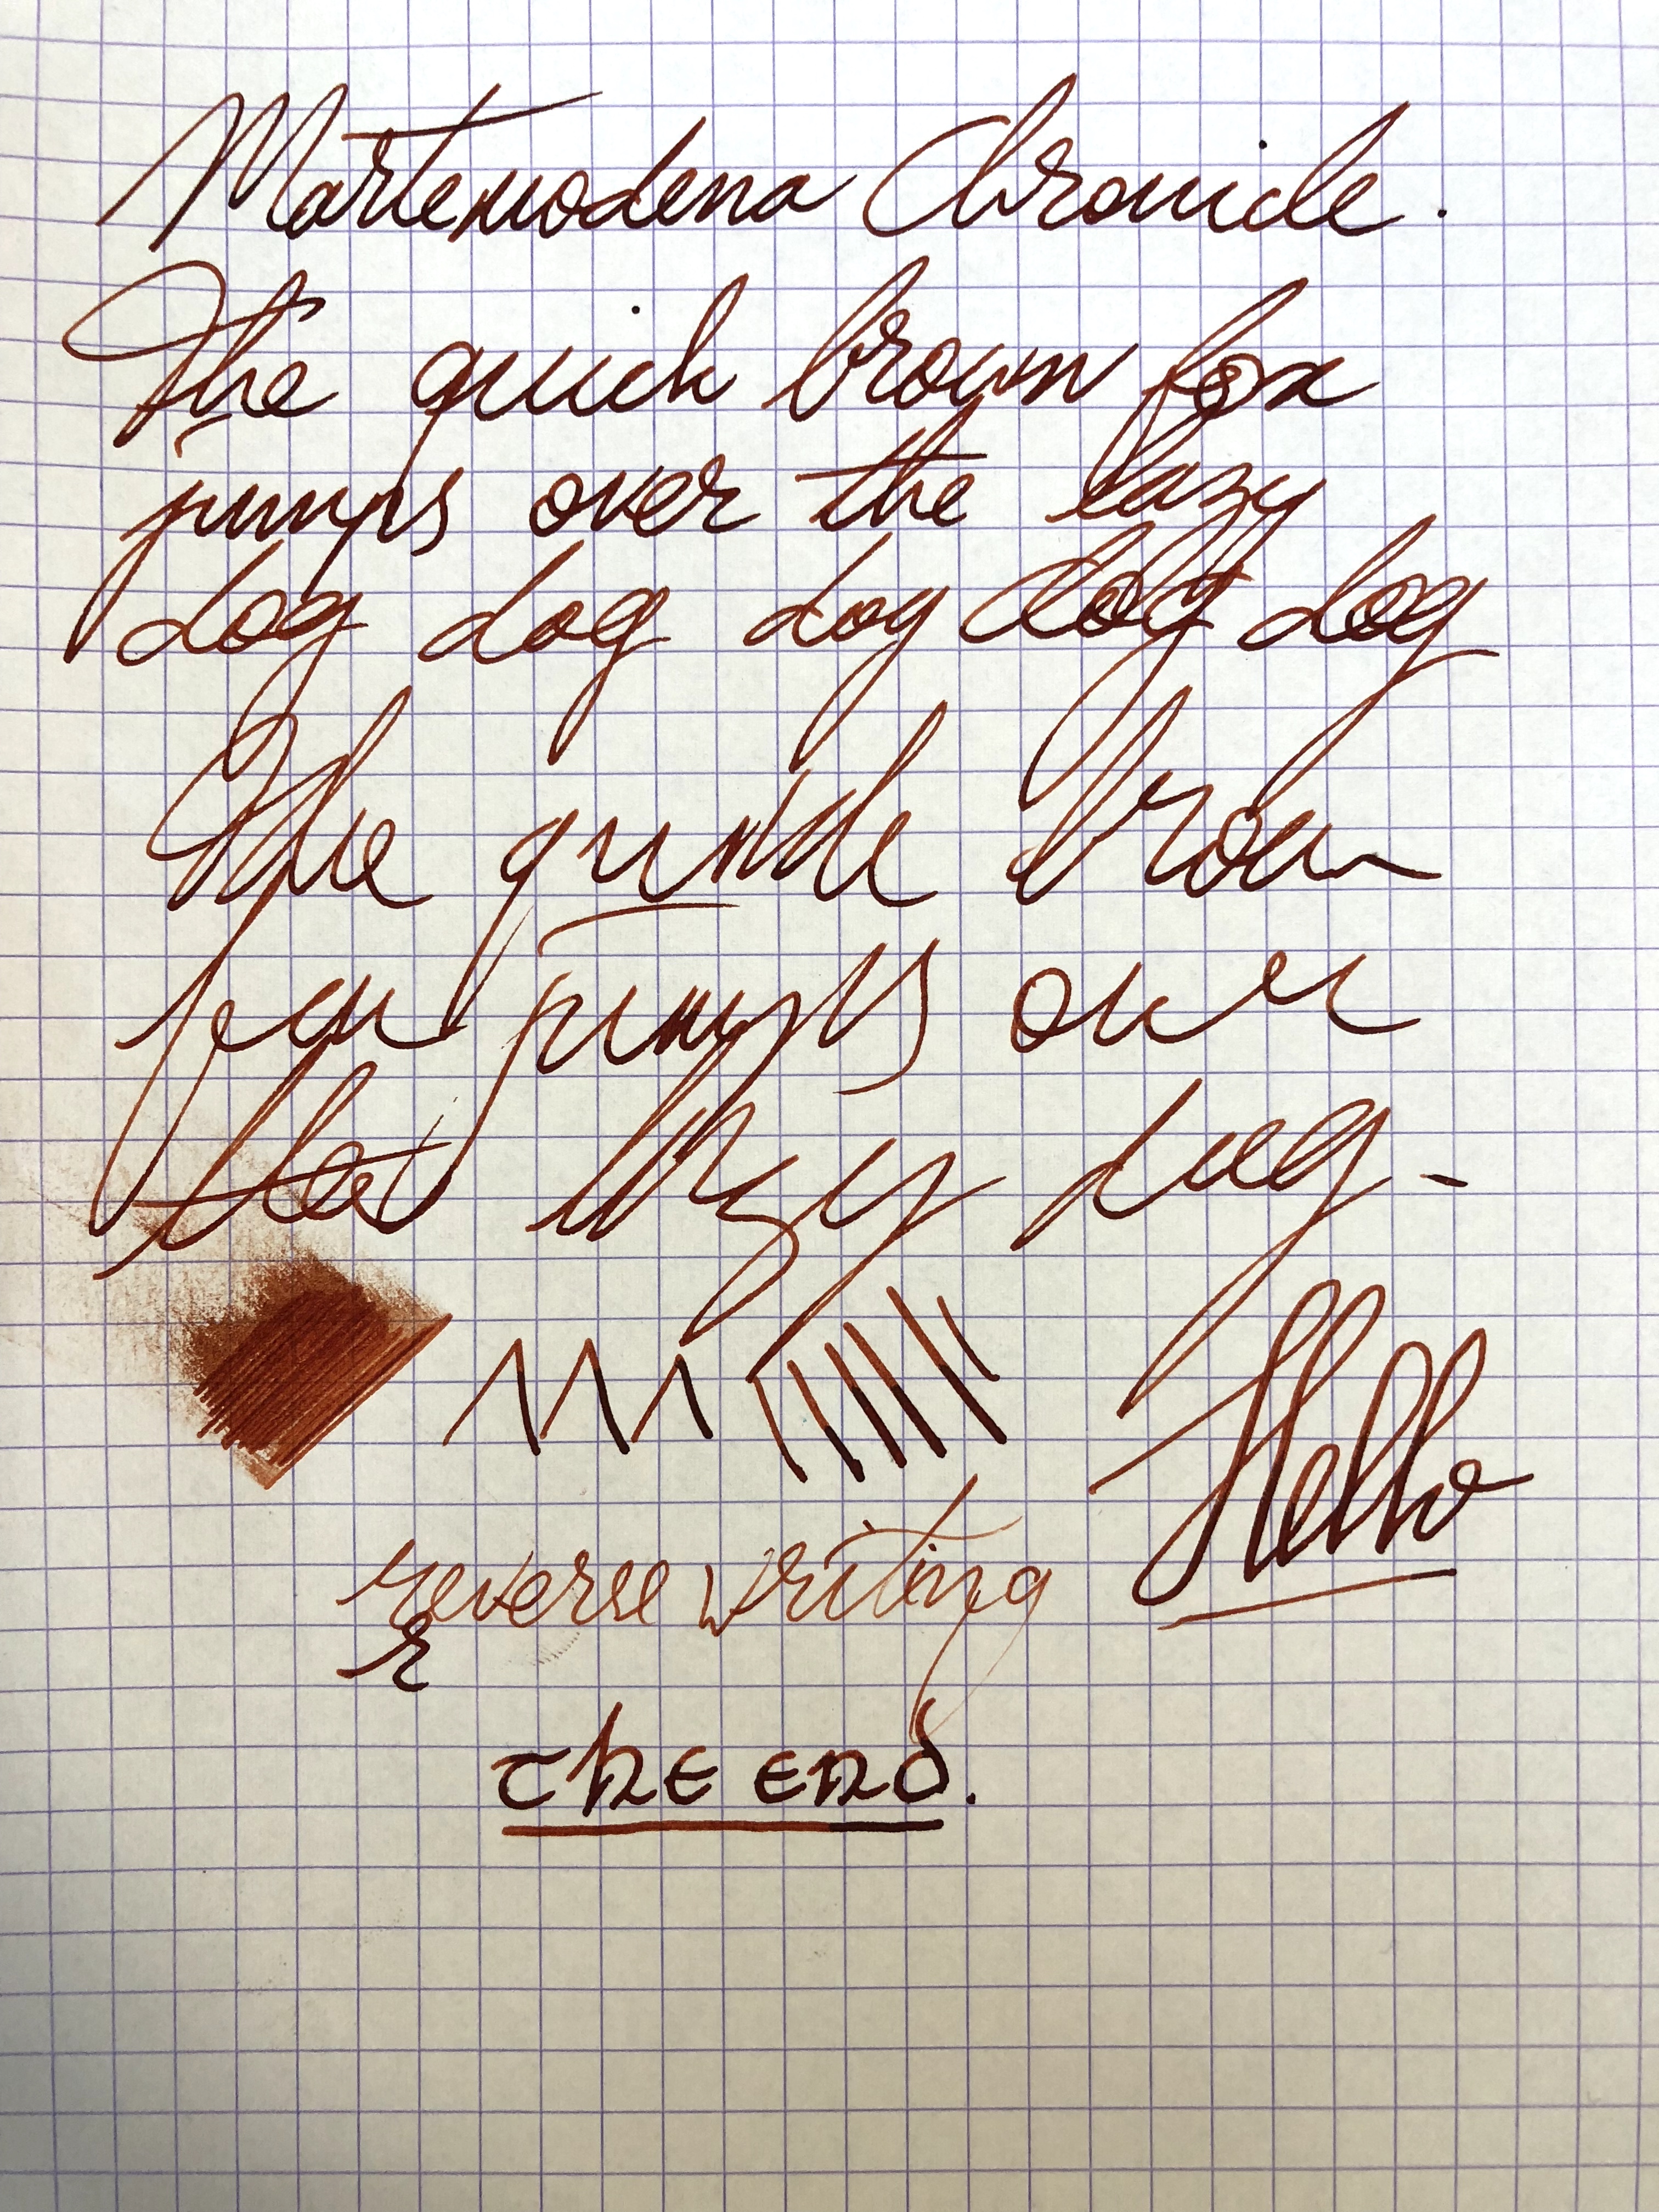 Martemodena Chronicle.
The quick brown fox
jumps over the lazy
dog dog dog dog dog
The quick brown
fox jumps over
the lazy dog -
Hello
reverse writing
r
the end.